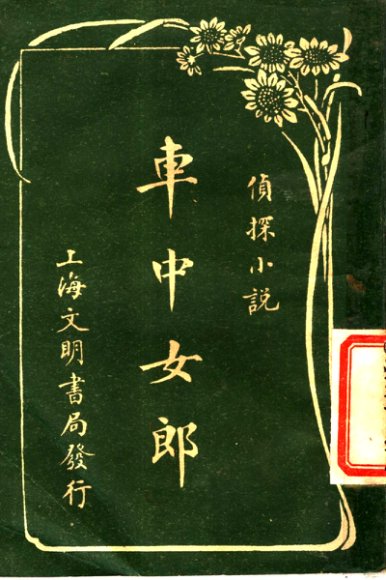 偵探小説
車中女郎
上海文明書局發行